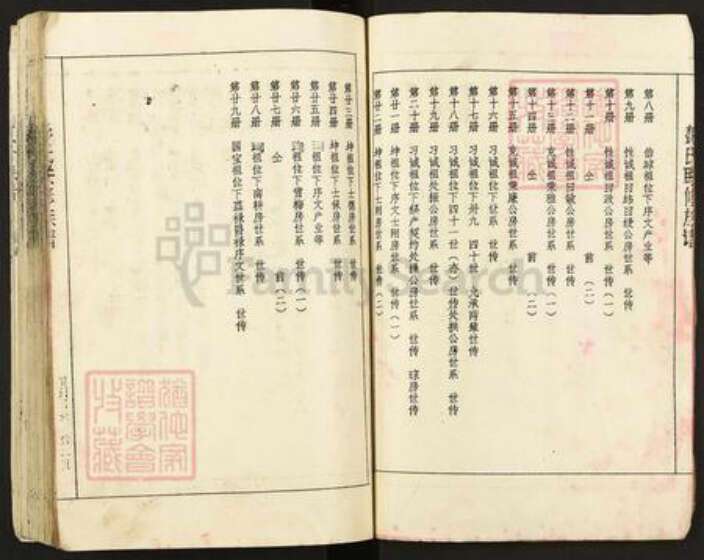 第八册 伯球祖位下序文产业等
第九册 性诚祖曰纬曰绶公房世系 世传
第十册 性诚祖曰政公房世系 世传（一）
第十一册 仝 前（二）
第十二册 性诚祖曰敏公房世系 世传
第十三册 克诚祖秉雅公房世系 世传（一）
第十四册 仝 前（二）
第十五册 克诚祖秉廉公房世系 世传
第十六册 习诚祖位下世系 世传
第十七册 习诚祖位下卅九 四十世 世传
第十八册 习诚祖位下四十一世 世传处拱公房世系 世传
第十九册 习诚祖处振公房世系 世传
第二十册 习诚祖位下标产契约处操公房世系 世传 球房世传
第廿一册 坤祖位下序文七刚房世系 世传（一）
第廿二册 坤祖位下七刚房世系 世传（二）
第廿三册 坤祖位下七德房世系 世传
第廿四册 坤祖位下七儀房世系 世传
第廿五册 祖位下序文产业等
第廿六册 祖位下雪梅房世系 世传（一）
第廿七册 仝 前（二）
第廿八册 祖位下南耕房世系 世传
第廿九册 国宝祖位下 序文世系 世传
FamilySearch
猶他家
譜學會
特藏